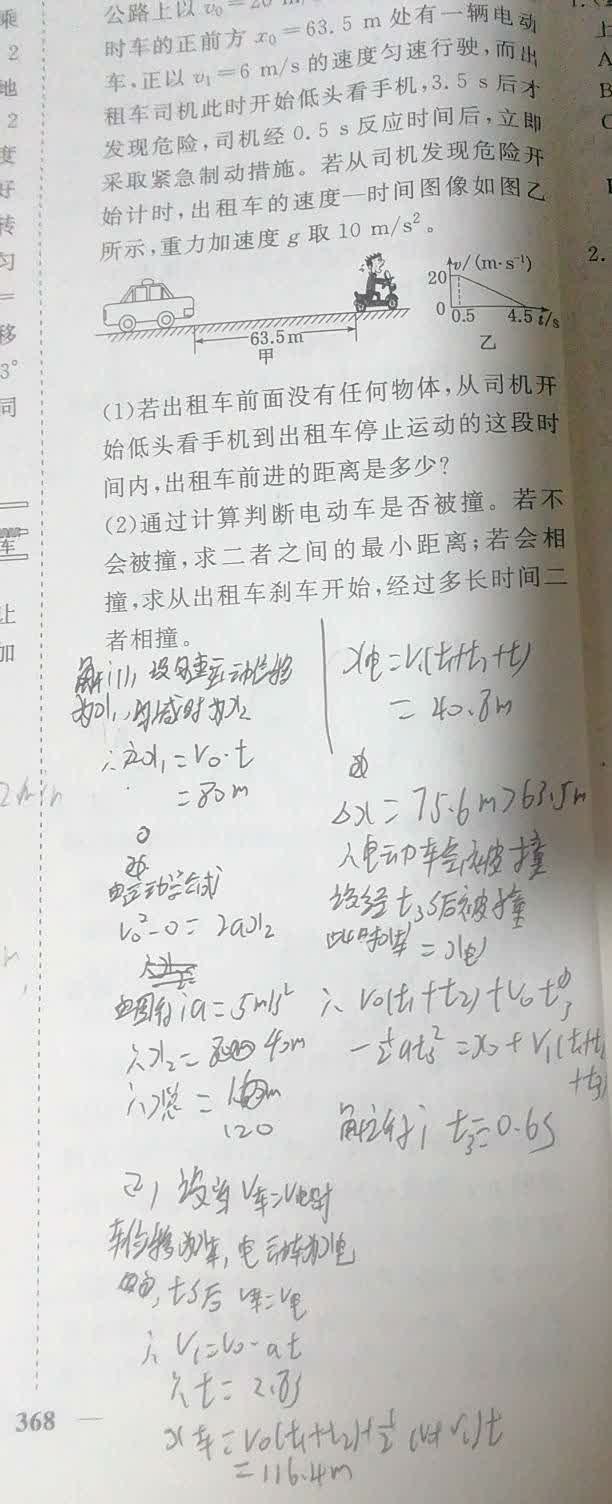 公路上以v₀=20 m/
时车的正前方x₀=63.5 m处有一辆电动
车,正以v₁=6 m/s的速度匀速行驶,而出
租车司机此时开始低头看手机,3.5 s后才
发现危险,司机经0.5 s反应时间后,立即
采取紧急制动措施。若从司机发现危险开
始计时,出租车的速度—时间图像如图乙
所示,重力加速度g取10 m/s²。
63.5m
甲
v/(m·s⁻¹)
20
0 0.5 4.5 t/s
乙
(1)若出租车前面没有任何物体,从司机开
始低头看手机到出租车停止运动的这段时
间内,出租车前进的距离是多少?
(2)通过计算判断电动车是否被撞。若不
会被撞,求二者之间的最小距离;若会相
撞,求从出租车刹车开始,经过多长时间二
者相撞。
∴x₁=v₀·t
=80m
由运动学公式
v₀²-0=2ax₂
由图得:a=5m/s²
∴x₂=40m
∴x总=
120
(2)设当v车=v电时
车位移为x车,电动车为x电
t s后 v车=v电
∴v₁=v₀-at
∴t=2.8s
x车=v₀(t₁+t₂)+½(v₀+v₁)t
=116.4m
x电=v₁(t₁+t₂+t)
=40.8m
Δx=75.6m>63.5m
∴电动车会被撞
设经t₃s后被撞
此时x车=x电
∴v₀(t₁+t₂)+v₀t₃
-½at₃²=x₀+v₁(t₁+t₂
+t₃)
解得:t₃=0.6s
368
2.